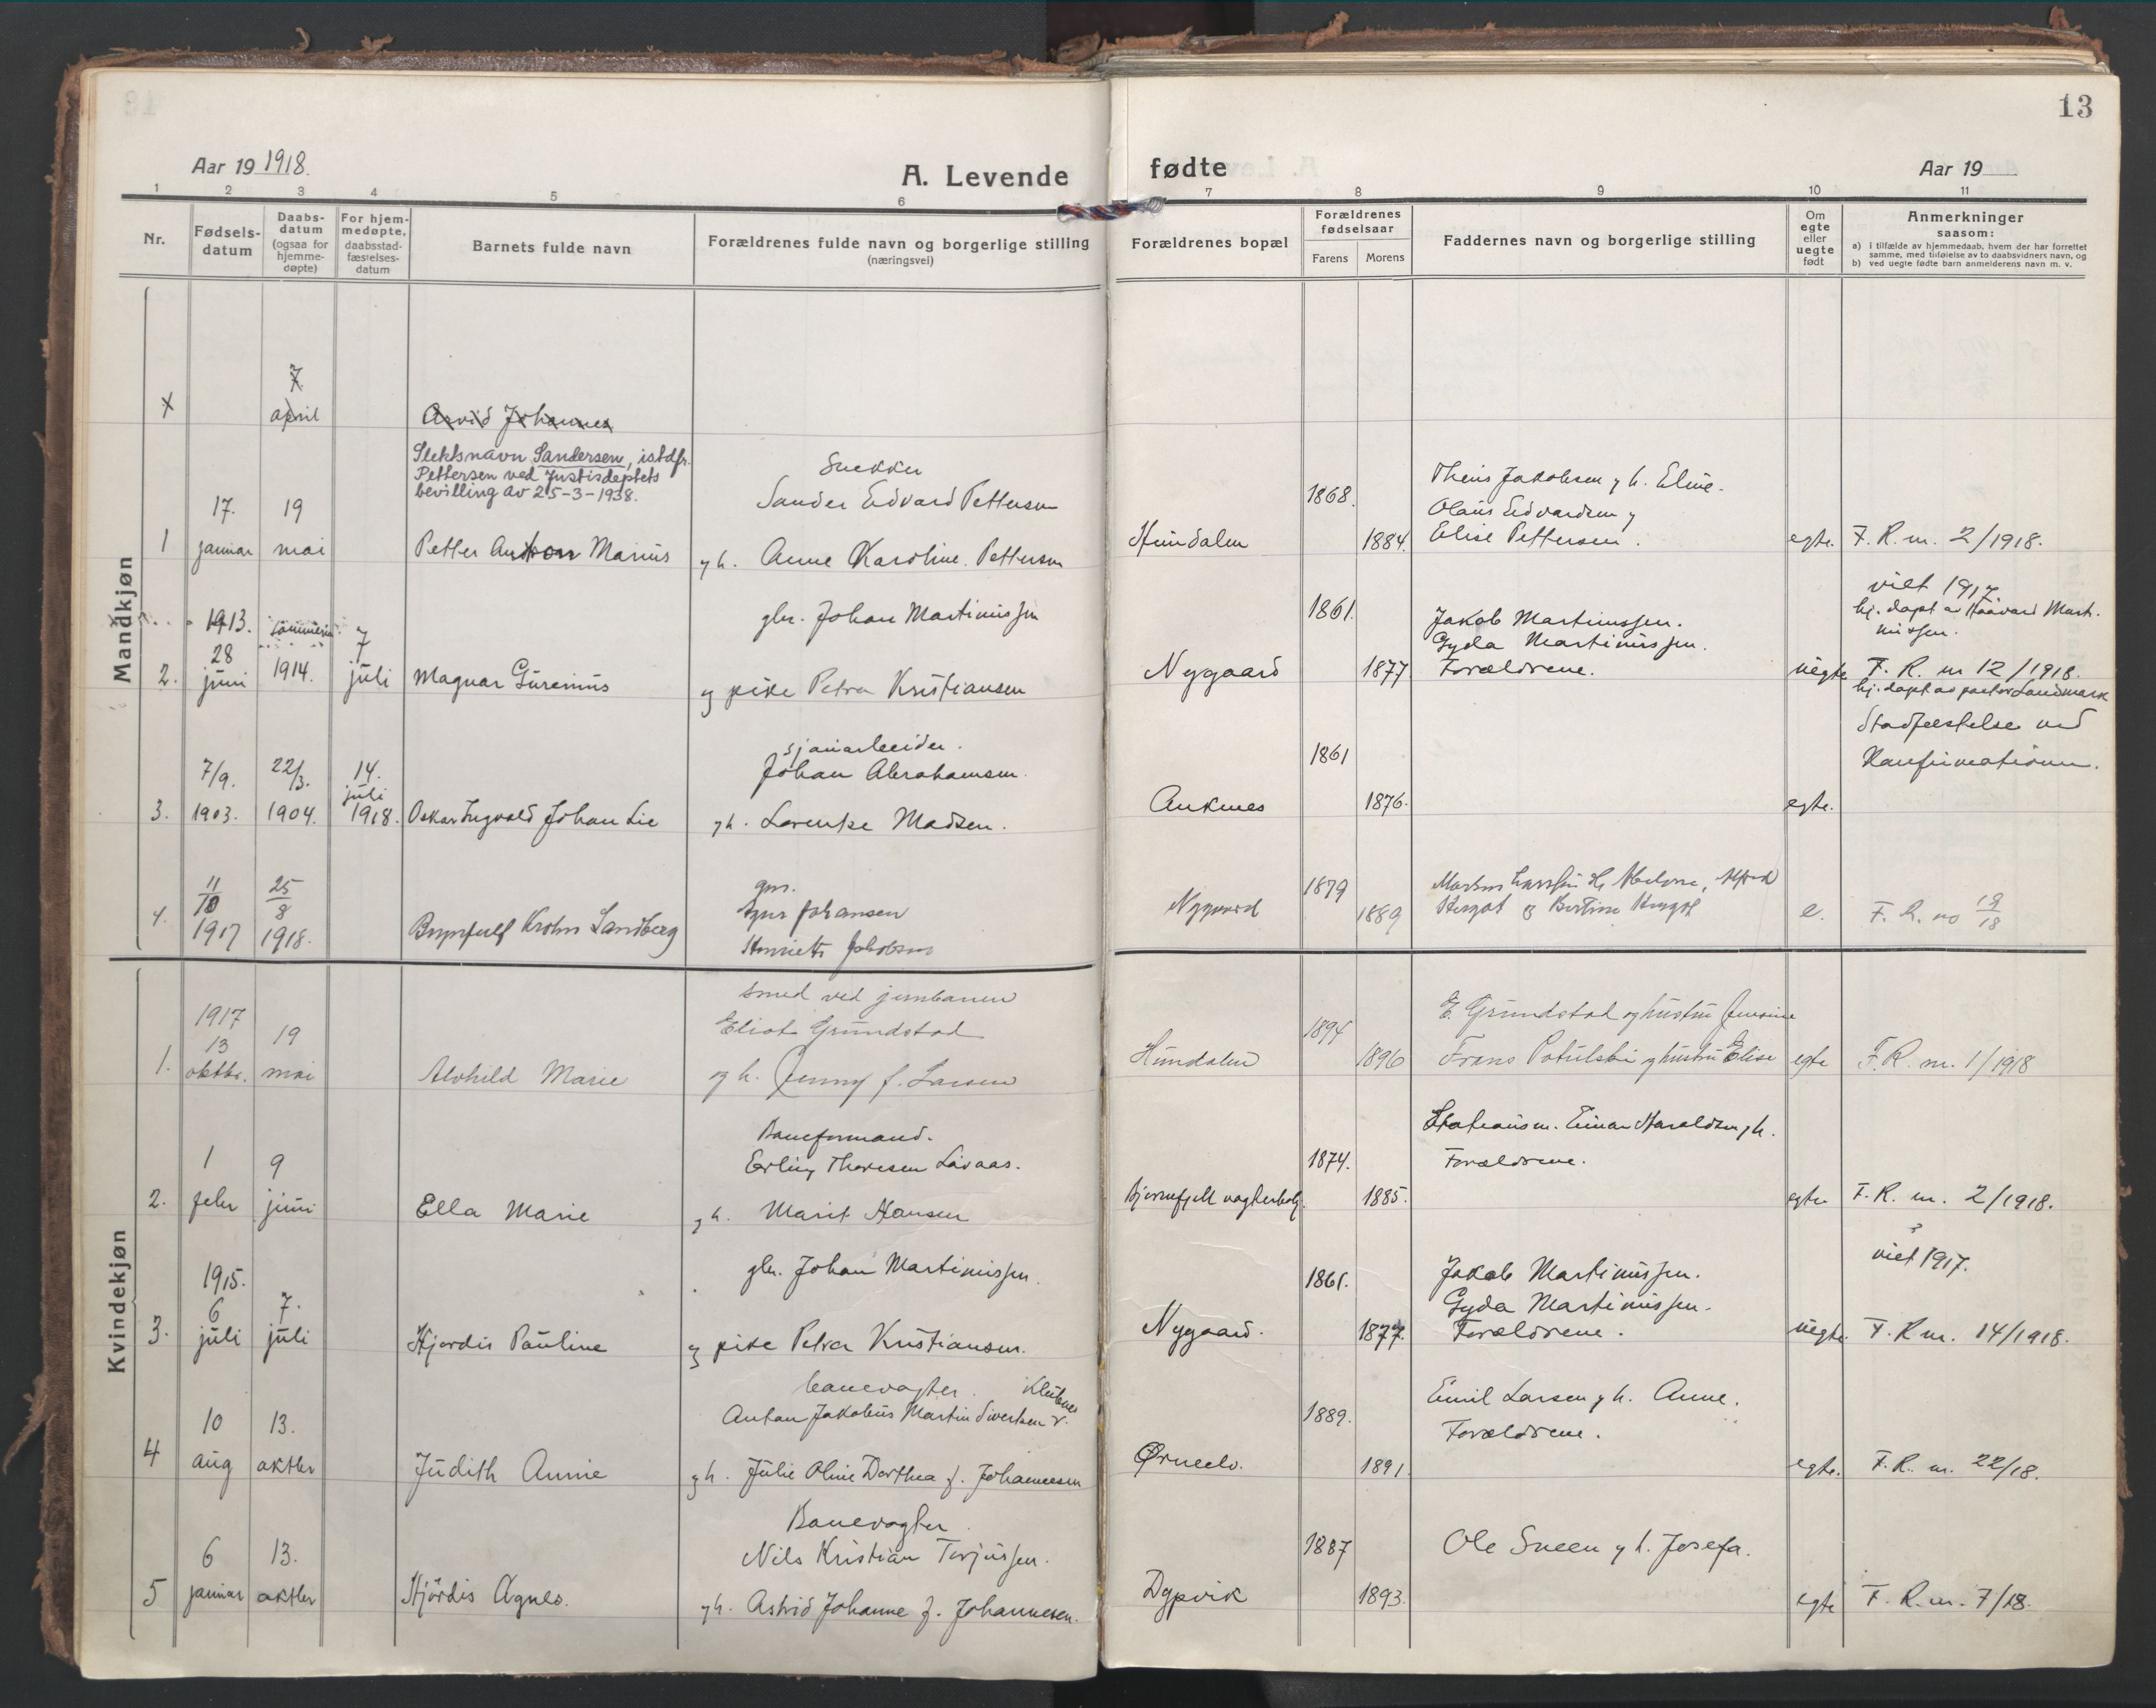 13
Aar 19 1918.
A. Levende
fødte
Aar 19
1 2 3 4 5 6 7 8 9 10 11
Nr.
Fødsels-
datum
Daabs-
datum
(ogsaa for
hjemme-
døpte)
For hjem-
medøpte,
daabsstad-
fæstelses-
datum
Barnets fulde navn
Forældrenes fulde navn og borgerlige stilling
(næringsvei)
Forældrenes bopæl
Forældrenes
fødselsaar
Farens
Morens
Faddernes navn og borgerlige stilling
Om
egte
eller
uegte
født
Anmerkninger
saasom:
a) i tilfælde av hjemmedaab, hvem der har forrettet
samme, med tilføielse av to daabsvidners navn, og
b) ved uegte fødte barn anmelderens navn m. v.
Mandkjøn
7
april
Arvid Johannes
Slektsnavn Sandersen, istdfr.
Pettersen ved Justisdeptets
bevilling av 25-3-1938.
1
17.
januar
19
mai
Petter Anton Marius
Snekker
Sander Edvard Pettersen
og h. Anne Karoline Pettersen
Hundalen
1868.
1884.
Theis Jakobsen og h. Eline.
Olaus Edvardsen og
Elise Pettersen.
egte.
F. R. nr. 2/1918.
2.
1913.
28
juni
sommeren
1914.
7
juli
Magnar Gurenius
gbr. Johan Martinussen
og pike Petra Kristiansen
Nygaard
1861.
1877
Jakob Martinussen.
Gyda Martinussen.
Forældrene.
uegte
viet 1917
hj. døpt av Haavard Mart-
nussen.
F. R. nr 12/1918.
3.
7/9.
1903.
22/3.
1904.
14.
juli
1918.
Oskar Ingvald Johan Lie
sjauarbeider.
Johan Abrahamsen.
og h. Lorentze Madsen.
Ankenes
1861
1876.
egte.
hj. døpt av pastor Landmark
Stadfæstelse ved
Konfirmationen.
4.
11
10
1917
25
8
1918.
Krohn Sandberg
gbr.
Johansen
Henriette Jakobsen
Nygaard
1879
1889
e.
F. R. no 19/18
Kvindekjøn
1.
1917
13
oktbr.
19
mai
Alvhild Marie
Smed ved jernbanen
Eliot Grundstad
og h. Jenny f. Larsen
Hundalen
1894
1896
E. Grundstad og hustru Jensine
Frans Potulski og hustru Elise
egte
F. R. nr. 1/1918
2.
1
febr
9
juni
Ella Marie
Baneformand.
Erling Thoresen Livaas.
og h. Marit Hansen
Bjørnefjell vogterbolig.
1874.
1885.
Stationsm. Einar Haraldsen og h.
Forældrene.
egte
F. R. nr. 2/1918.
3.
1915.
6
juli
7.
juli
Hjørdis Pauline
gbr. Johan Martinussen.
og pike Petra Kristiansen.
Nygaard.
1861.
1877.
Jakob Martinussen.
Gyda Martinussen.
Forældrene.
uegte.
viet 1917.
F. R nr. 14/1918.
4
10
aug
13.
oktbr
Judith Annie
banevogter.
Anton Jakobus Martin Sivertsen
og h. Julie Oline Dorthea f. Johannesen
Ørnelv.
1889.
1891.
Emil Larsen og h. Anne.
Forældrene.
egte.
F. R. nr. 22/18.
5
6
januar
13.
oktbr
Hjördis Agnes.
Banevogter
Nils Kristian Torjussen.
og h. Astrid Johanne f. Johannesen.
Dypvik
1887
1893.
Ole Sneen og h. Josefa.
egte
F. R. nr. 7/18.